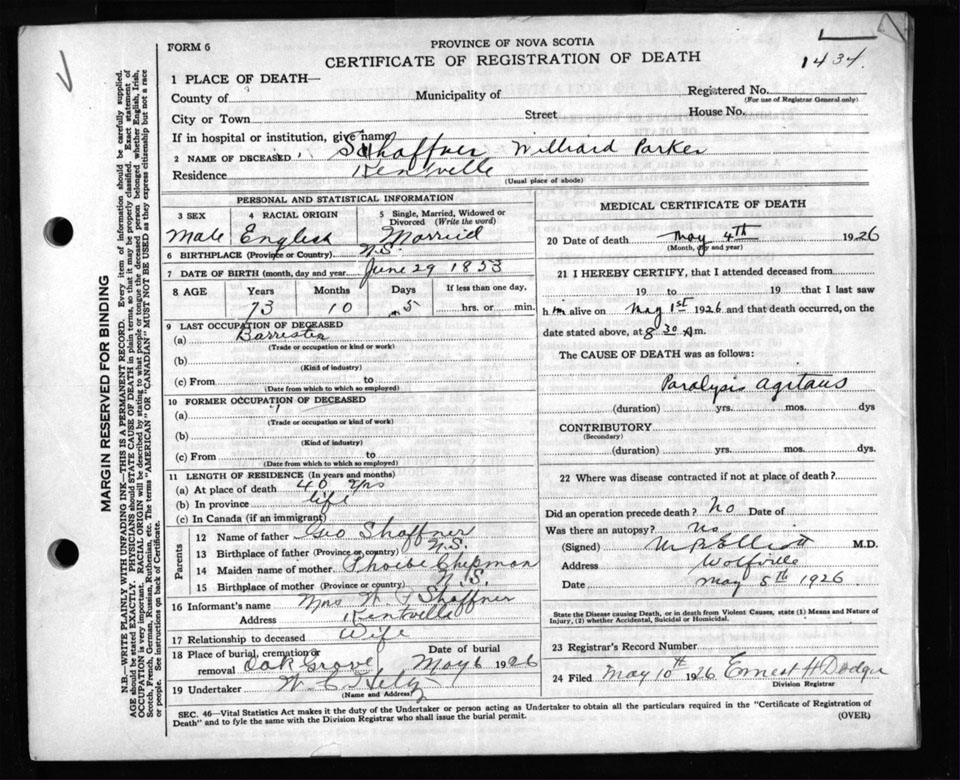 FORM 6
PROVINCE OF NOVA SCOTIA
CERTIFICATE OF REGISTRATION OF DEATH
1434.
1 PLACE OF DEATH—
County of Municipality of Registered No.
(For use of Registrar General only)
City or Town Street House No.
If in hospital or institution, give name
2 NAME OF DECEASED Shaffner Williard Parker
Residence Kentville
(Usual place of abode)
PERSONAL AND STATISTICAL INFORMATION
3 SEX 4 RACIAL ORIGIN 5 Single, Married, Widowed or Divorced (Write the word)
Male English Married
6 BIRTHPLACE (Province or Country) N.S.
7 DATE OF BIRTH (month, day and year) June 29 1853
8 AGE Years Months Days If less than one day,
73 10 5 hrs. or min.
9 LAST OCCUPATION OF DECEASED
(a) Barrister
(Trade or occupation or kind or work)
(b)
(Kind of industry)
(c) From to
(Date from which to which so employed)
10 FORMER OCCUPATION OF DECEASED
(a)
(Trade or occupation or kind of work)
(b)
(Kind of industry)
(c) From to
(Date from which to which so employed)
11 LENGTH OF RESIDENCE (In years and months)
(a) At place of death 40 yrs
(b) In province life
(c) In Canada (if an immigrant)
Parents
12 Name of father Geo Shaffner
13 Birthplace of father (Province or country) N.S.
14 Maiden name of mother Phoebe Chipman
15 Birthplace of mother (Province or country) N.S.
16 Informant's name Mrs W P Shaffner
Address Kentville
17 Relationship to deceased Wife
18 Place of burial, cremation or removal Oak Grove Date of burial May 6 1926
19 Undertaker W. C.
(Name and Address)
MEDICAL CERTIFICATE OF DEATH
20 Date of death May 4th 1926
(Month, day and year)
21 I HEREBY CERTIFY, that I attended deceased from
19 to 19 that I last saw
him alive on May 1st 1926 and that death occurred, on the
date stated above, at 8 30 Am.
The CAUSE OF DEATH was as follows:
Paralysis Agitans
(duration) yrs. mos. dys
CONTRIBUTORY
(Secondary)
(duration) yrs. mos. dys.
22 Where was disease contracted if not at place of death?
Did an operation precede death? No Date of
Was there an autopsy? No
(Signed) Elliott M.D.
Address Wolfville
Date May 5th 1926
State the Disease causing Death, or in death from Violent Causes, state (1) Means and Nature of
Injury, (2) whether Accidental, Suicidal or Homicidal.
23 Registrar's Record Number
24 Filed May 10th 1926 Ernest H Dodge
Division Registrar
SEC. 46—Vital Statistics Act makes it the duty of the Undertaker or person acting as Undertaker to obtain all the particulars required in the "Certificate of Registration of
Death" and to fyle the same with the Division Registrar who shall issue the burial permit.
(OVER)
MARGIN RESERVED FOR BINDING
N.B.—WRITE PLAINLY WITH UNFADING INK—THIS IS A PERMANENT RECORD. Every item of information should be carefully supplied.
AGE should be stated EXACTLY. PHYSICIANS should STATE CAUSE OF DEATH in plain terms, so that it may be properly classified. Exact statement of
OCCUPATION is very important. RACIAL ORIGIN will be described by stating to what people or tongue the deceased person belonged whether English, Irish,
Scotch, French, German, Russian, Ruthenian, etc. The terms "AMERICAN" OR "CANADIAN" MUST NOT BE USED as they express citizenship but not a race
or people. See instructions on back of Certificate.